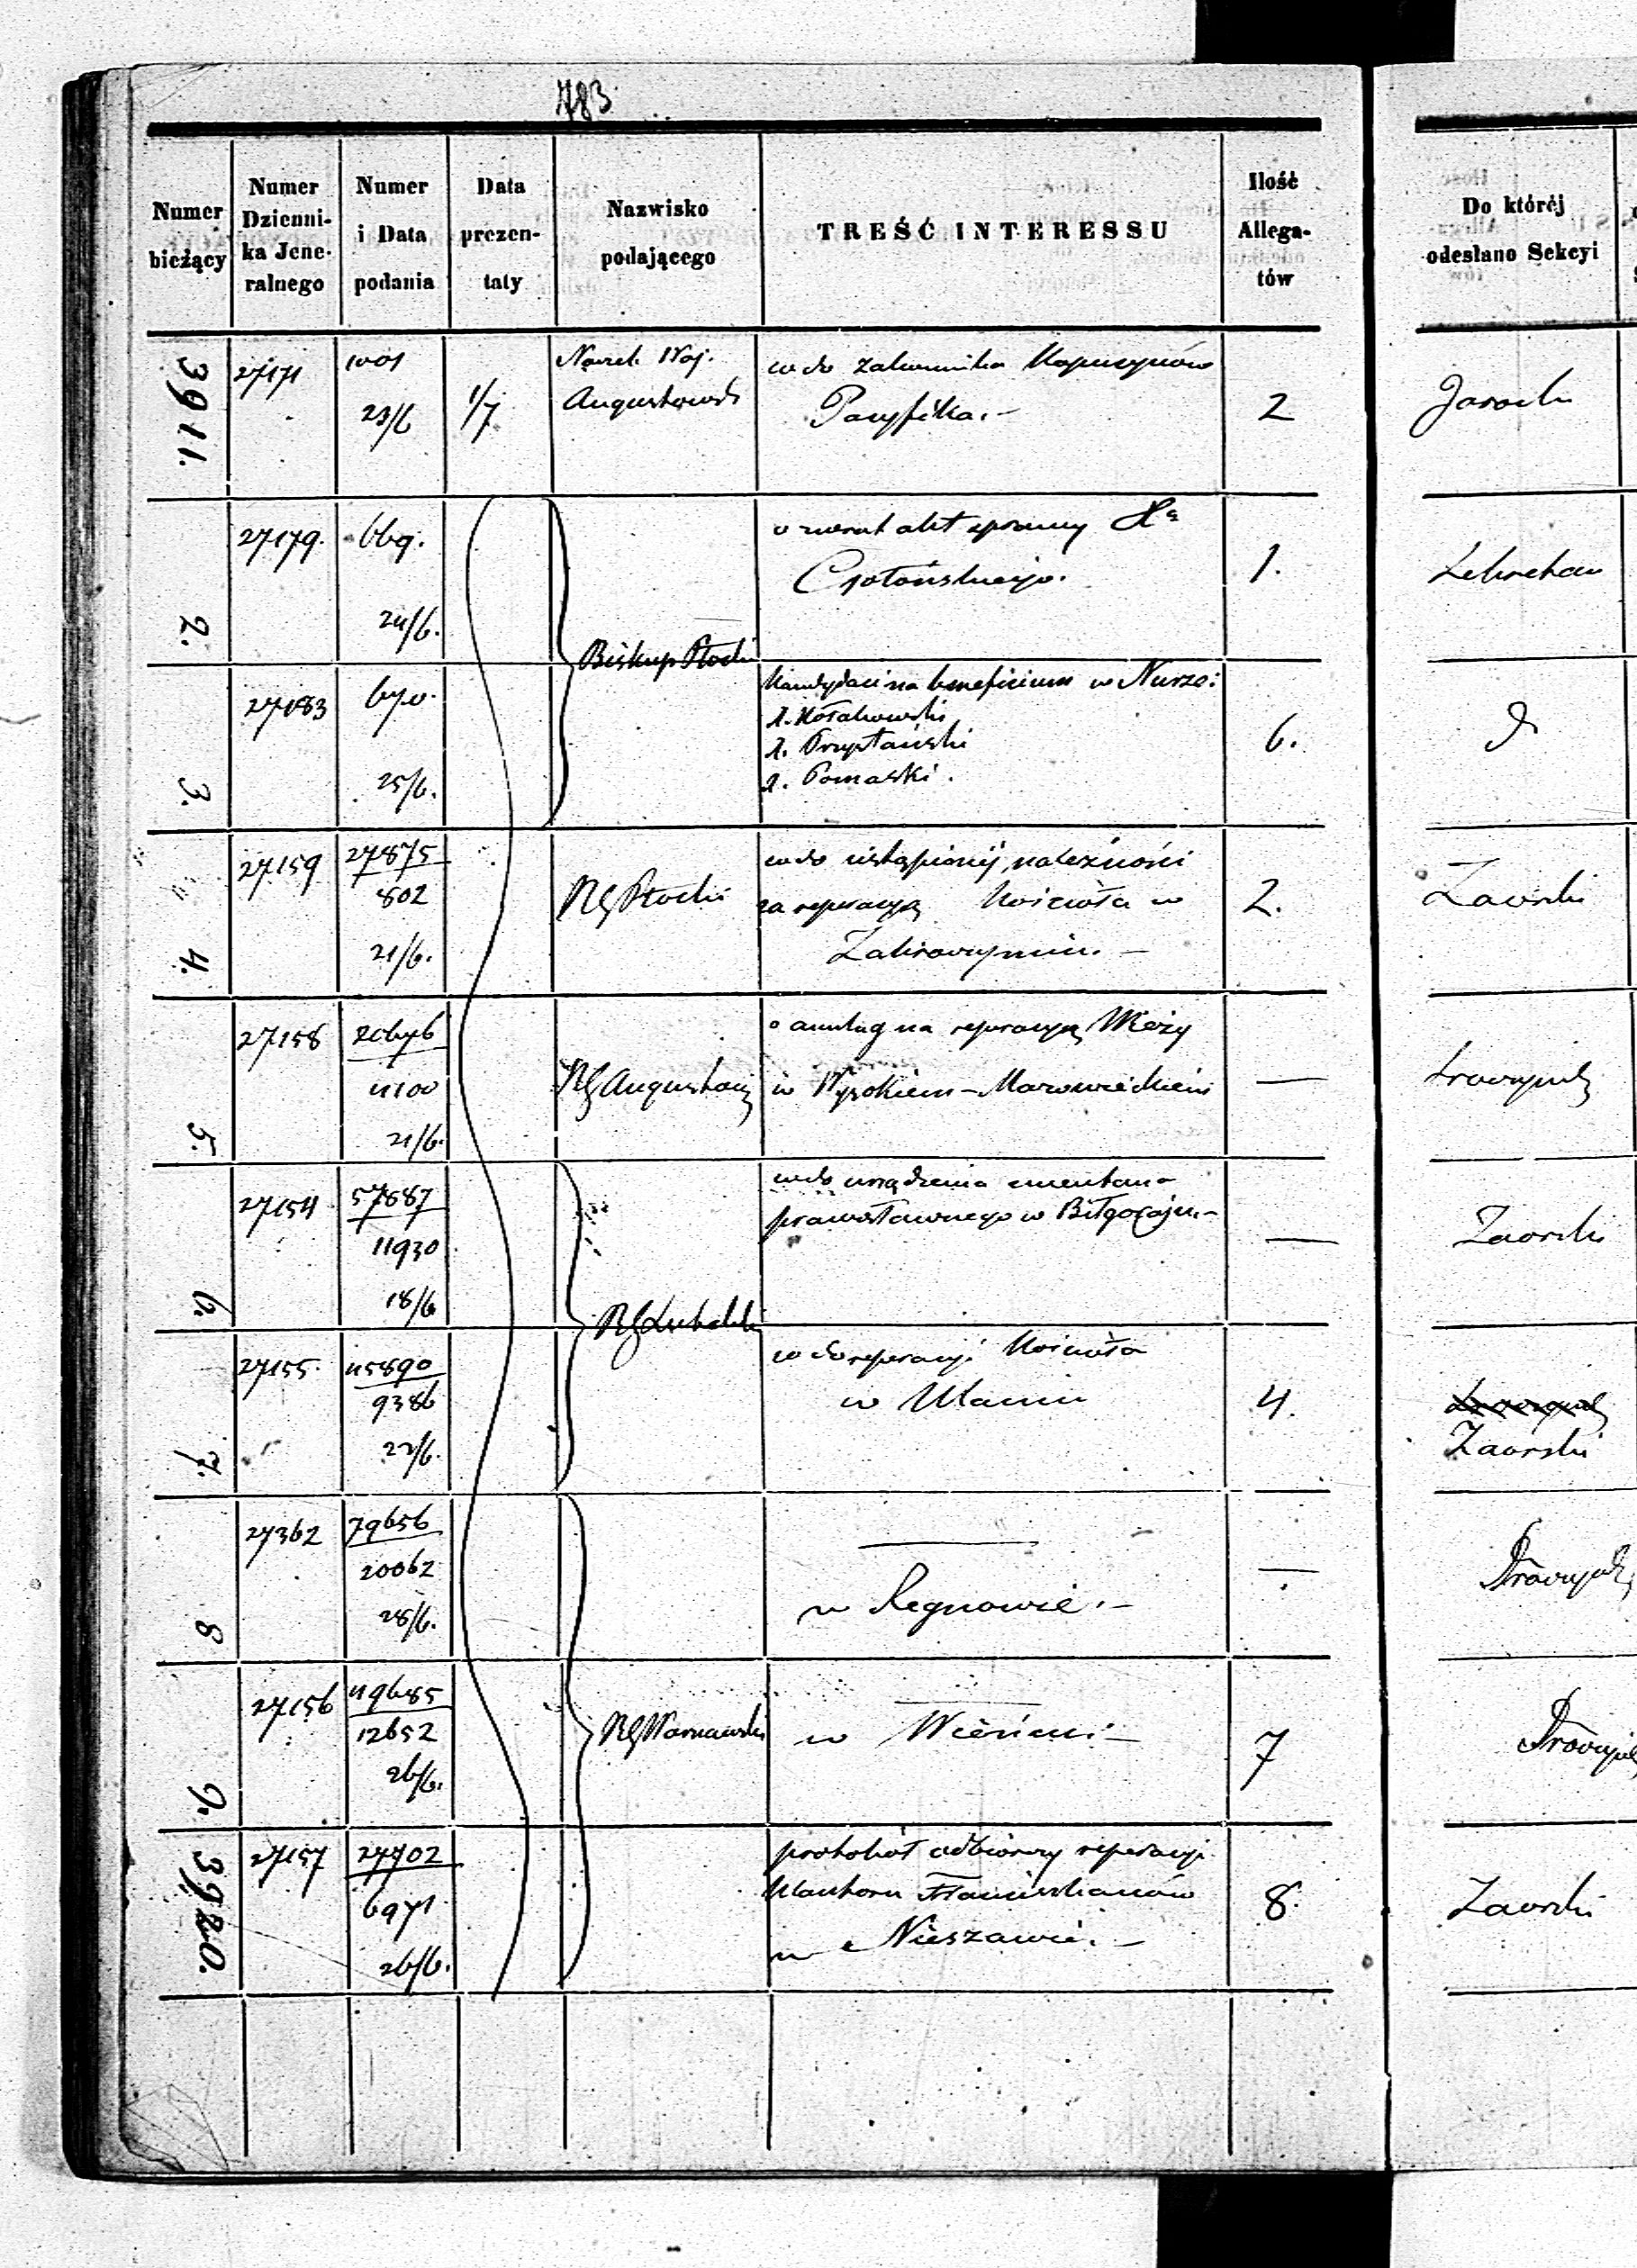 783
Numer bieżący
Numer Dzienni- ka Jene- ralnego
Numer i Data podania
Data prezen- taty
Nazwisko podającego
TREŚĆ INTERESSU
Ilość Allega- tów
Do której odesłano Sekcyi
3911.
27171
1001
23/6
1/7
Naczel. Woj.
Augustowski
wdo zakonnika Kapucynów
Pacyfika.-
2
2.
27179.
669.
24/6.
Biskup Płocki
o zwrot akt sprawy
1.
3.
27183
670.
25/6.
Kandydaci na beneficium w Nurze:
X. Kołakowski
X.
X. Pomaski.
6.
4.
27159
27875
802
21/6.
RG Płocki
wdo ustąpionej należności
za reperacyą Kościoła w
Zakroczymiu.-
2.
Zaorski
5.
27158
20676
4100
21/6.
RG Augustow
o na reperacyą Wieży
w Wysokiem-Mazowieckiem
6.
27154
57687
11930
18/6
RG Lubelski
wdo urządzenia cmentarza
prawosławnego w Biłgoraju.-
Zaorski
7.
27155.
45890
9386
22/6.
wdo reperacyi Kościoła
w Ulanie
4.
Zaorski
8
27362
79656
20062
28/6.
w Regnowie.-
9.
27156
49685
12652
26/6.
RG Warszawski
w
7
3920.
27157
27702
6971
26/6.
protokół odbiorczy reperacyi
Klasztoru Franciszkanów
w Nieszawie.-
8.
Zaorski